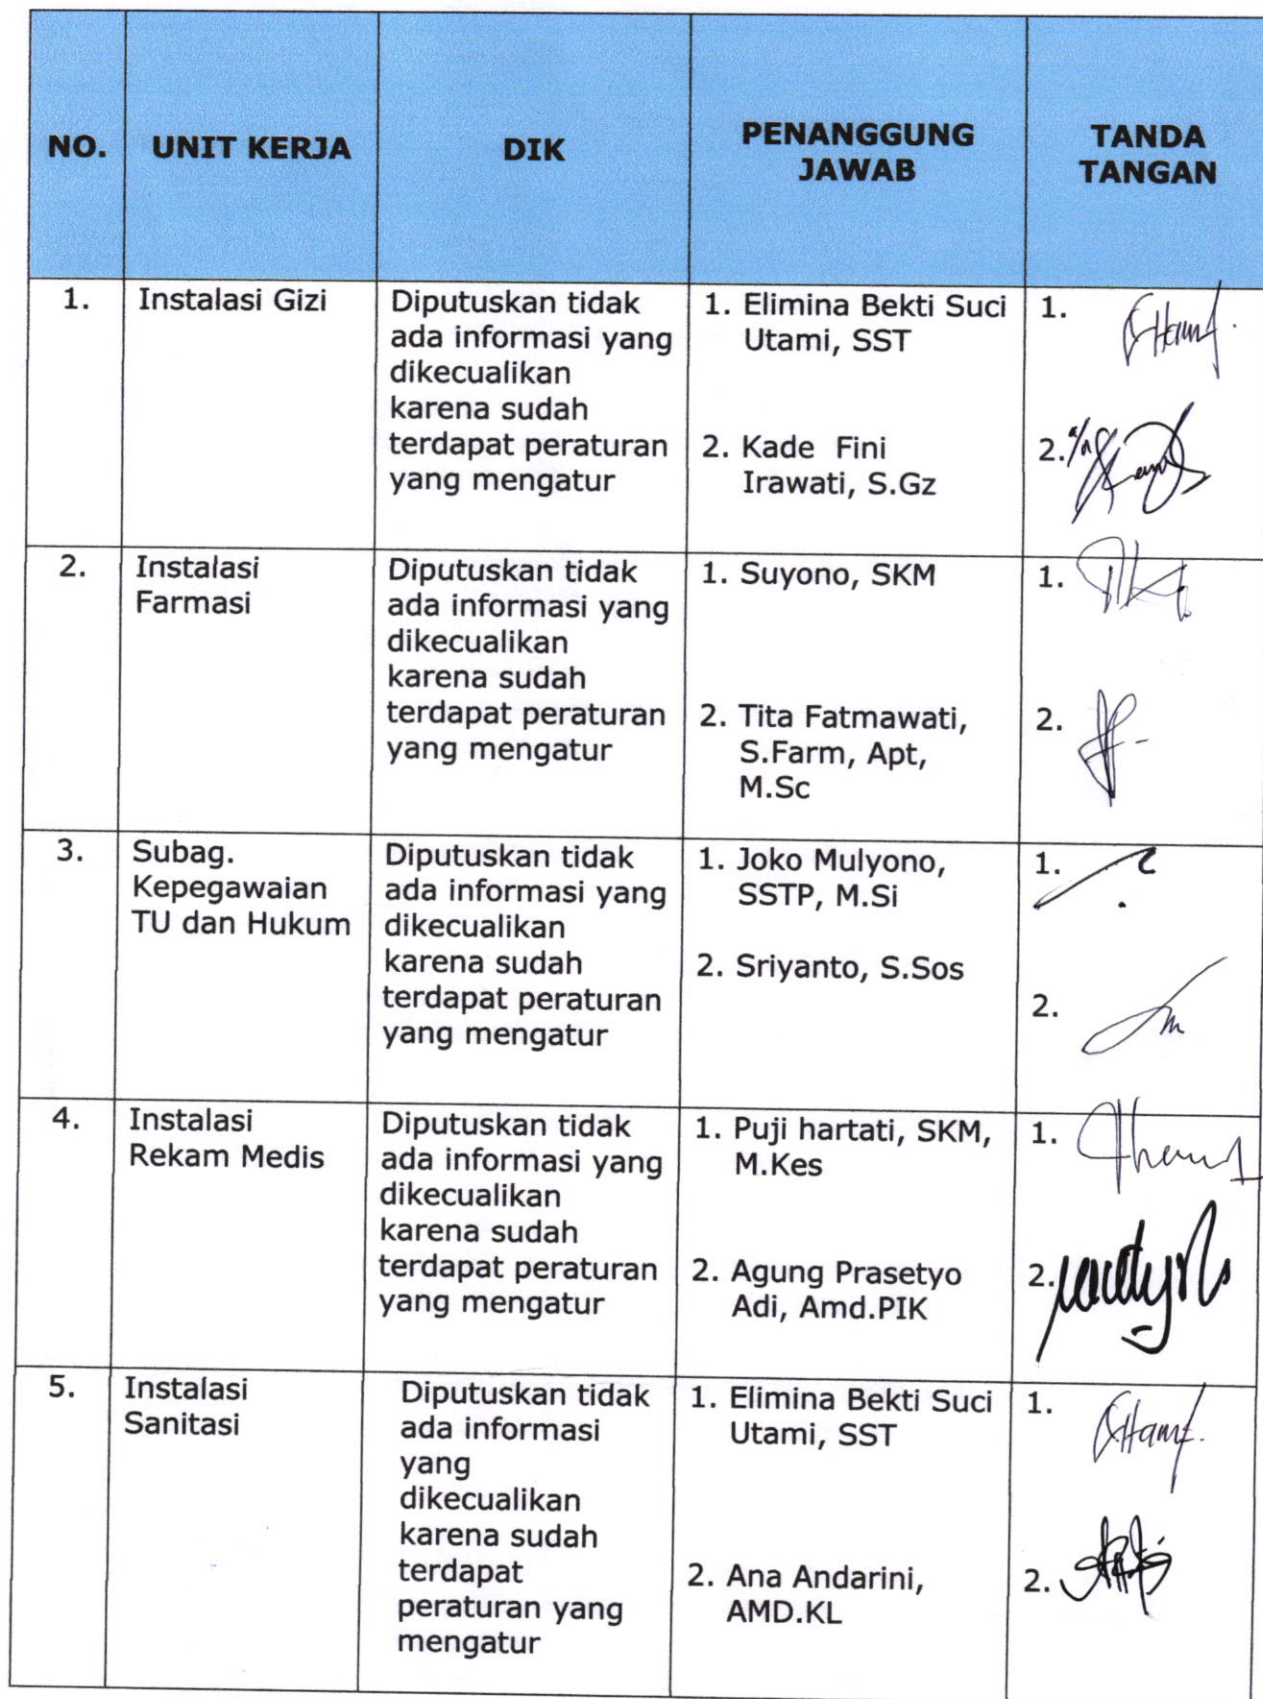 NO.
UNIT KERJA
DIK
PENANGGUNG
JAWAB
TANDA
TANGAN
1.
Instalasi Gizi
Diputuskan tidak
ada informasi yang
dikecualikan
karena sudah
terdapat peraturan
yang mengatur
1. Elimina Bekti Suci
Utami, SST
2. Kade Fini
Irawati, S.Gz
1.
2. a/n
2.
Instalasi
Farmasi
Diputuskan tidak
ada informasi yang
dikecualikan
karena sudah
terdapat peraturan
yang mengatur
1. Suyono, SKM
2. Tita Fatmawati,
S.Farm, Apt,
M.Sc
1.
2.
3.
Subag.
Kepegawaian
TU dan Hukum
Diputuskan tidak
ada informasi yang
dikecualikan
karena sudah
terdapat peraturan
yang mengatur
1. Joko Mulyono,
SSTP, M.Si
2. Sriyanto, S.Sos
1.
2.
4.
Instalasi
Rekam Medis
Diputuskan tidak
ada informasi yang
dikecualikan
karena sudah
terdapat peraturan
yang mengatur
1. Puji hartati, SKM,
M.Kes
2. Agung Prasetyo
Adi, Amd.PIK
1.
2.
5.
Instalasi
Sanitasi
Diputuskan tidak
ada informasi
yang
dikecualikan
karena sudah
terdapat
peraturan yang
mengatur
1. Elimina Bekti Suci
Utami, SST
2. Ana Andarini,
AMD.KL
1.
2.